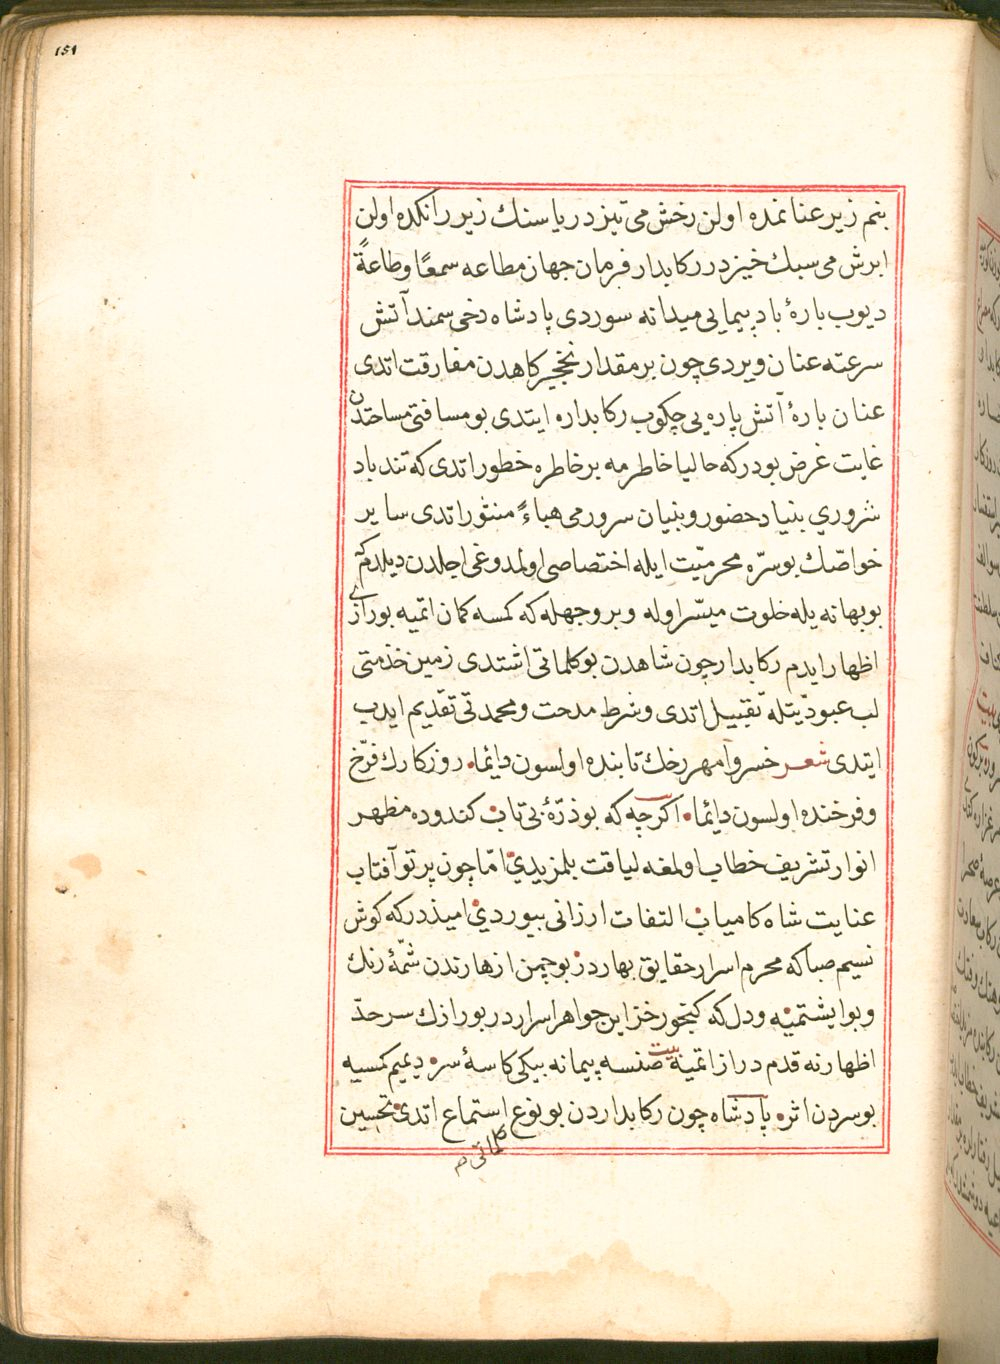 151
بنم زیر عنانمده اولن رخش می تیزدر یا سنك زیر رانكده اولن
ابرش می سبك خیزدر ركابدار فرمان جهان مطاعه سمعًا وطاعةً
دیوب بارهٔ باد پیمایی میدانه سوردی پادشاه دخی سمند آتش
سرعته عنان ویردی چون بر مقدار نخچیركاهدن مفارقت اتدی
عنان بارهٔ آتش پاره یی چكوب ركابداره ایتدی بو مسافتی مساحتدن
غایت غرض بودر كه حالیا خاطرمه بر خاطره خطور اتدی كه تند باد
شروری بنیاد حضور و بنیان سرورمی هباءً منثور اتدی سایر
خواصّك بو سرّه محرمیّت ایله اختصاصی اولمدوغی اجلدن دیلدم كه
بو بهانه یله خلوت میسّر اوله و بر وجهله كه كمسه كمان اتمیه بو رازی
اظهار ایدم ركابدار چون شاهدن بو كلماتی اشتدی زمین خذمتی
لب عبودیّتله تقبیل اتدی وشرط مدحت ومحمدتی تقدیم ایدب
ایتدی شعر خسروا مهر رخك تابنده اولسون دائما روزكارك فرّخ
و فرخنده اولسون دائما اكرچه كه بو ذرّهٔ بی تاب كندوده مظهر
انوار تشریف خطاب اولمغه لیاقت بلمزیدی امّا چون پرتو آفتاب
عنایت شاه كامیاب التفات ارزانی بیوردی امیذدر كه كوش
نسیم صبا كه محرم اسرار حقایق بهاردر بو چمن ازهارندن شمّهٔ رنك
و بو ایشتمیه و دل كه كنجور خزاین جواهر اسراردر بو رازك سر حدّ
اظهارنه قدم دراز اتمیه بیت صنسه پیمانه بیكی كاسهٔ سر دیمیم كمسیه
بو سردن اثر پادشاه چون ركابداردن بو نوع استماع اتدی تحسین
كلماتی صح